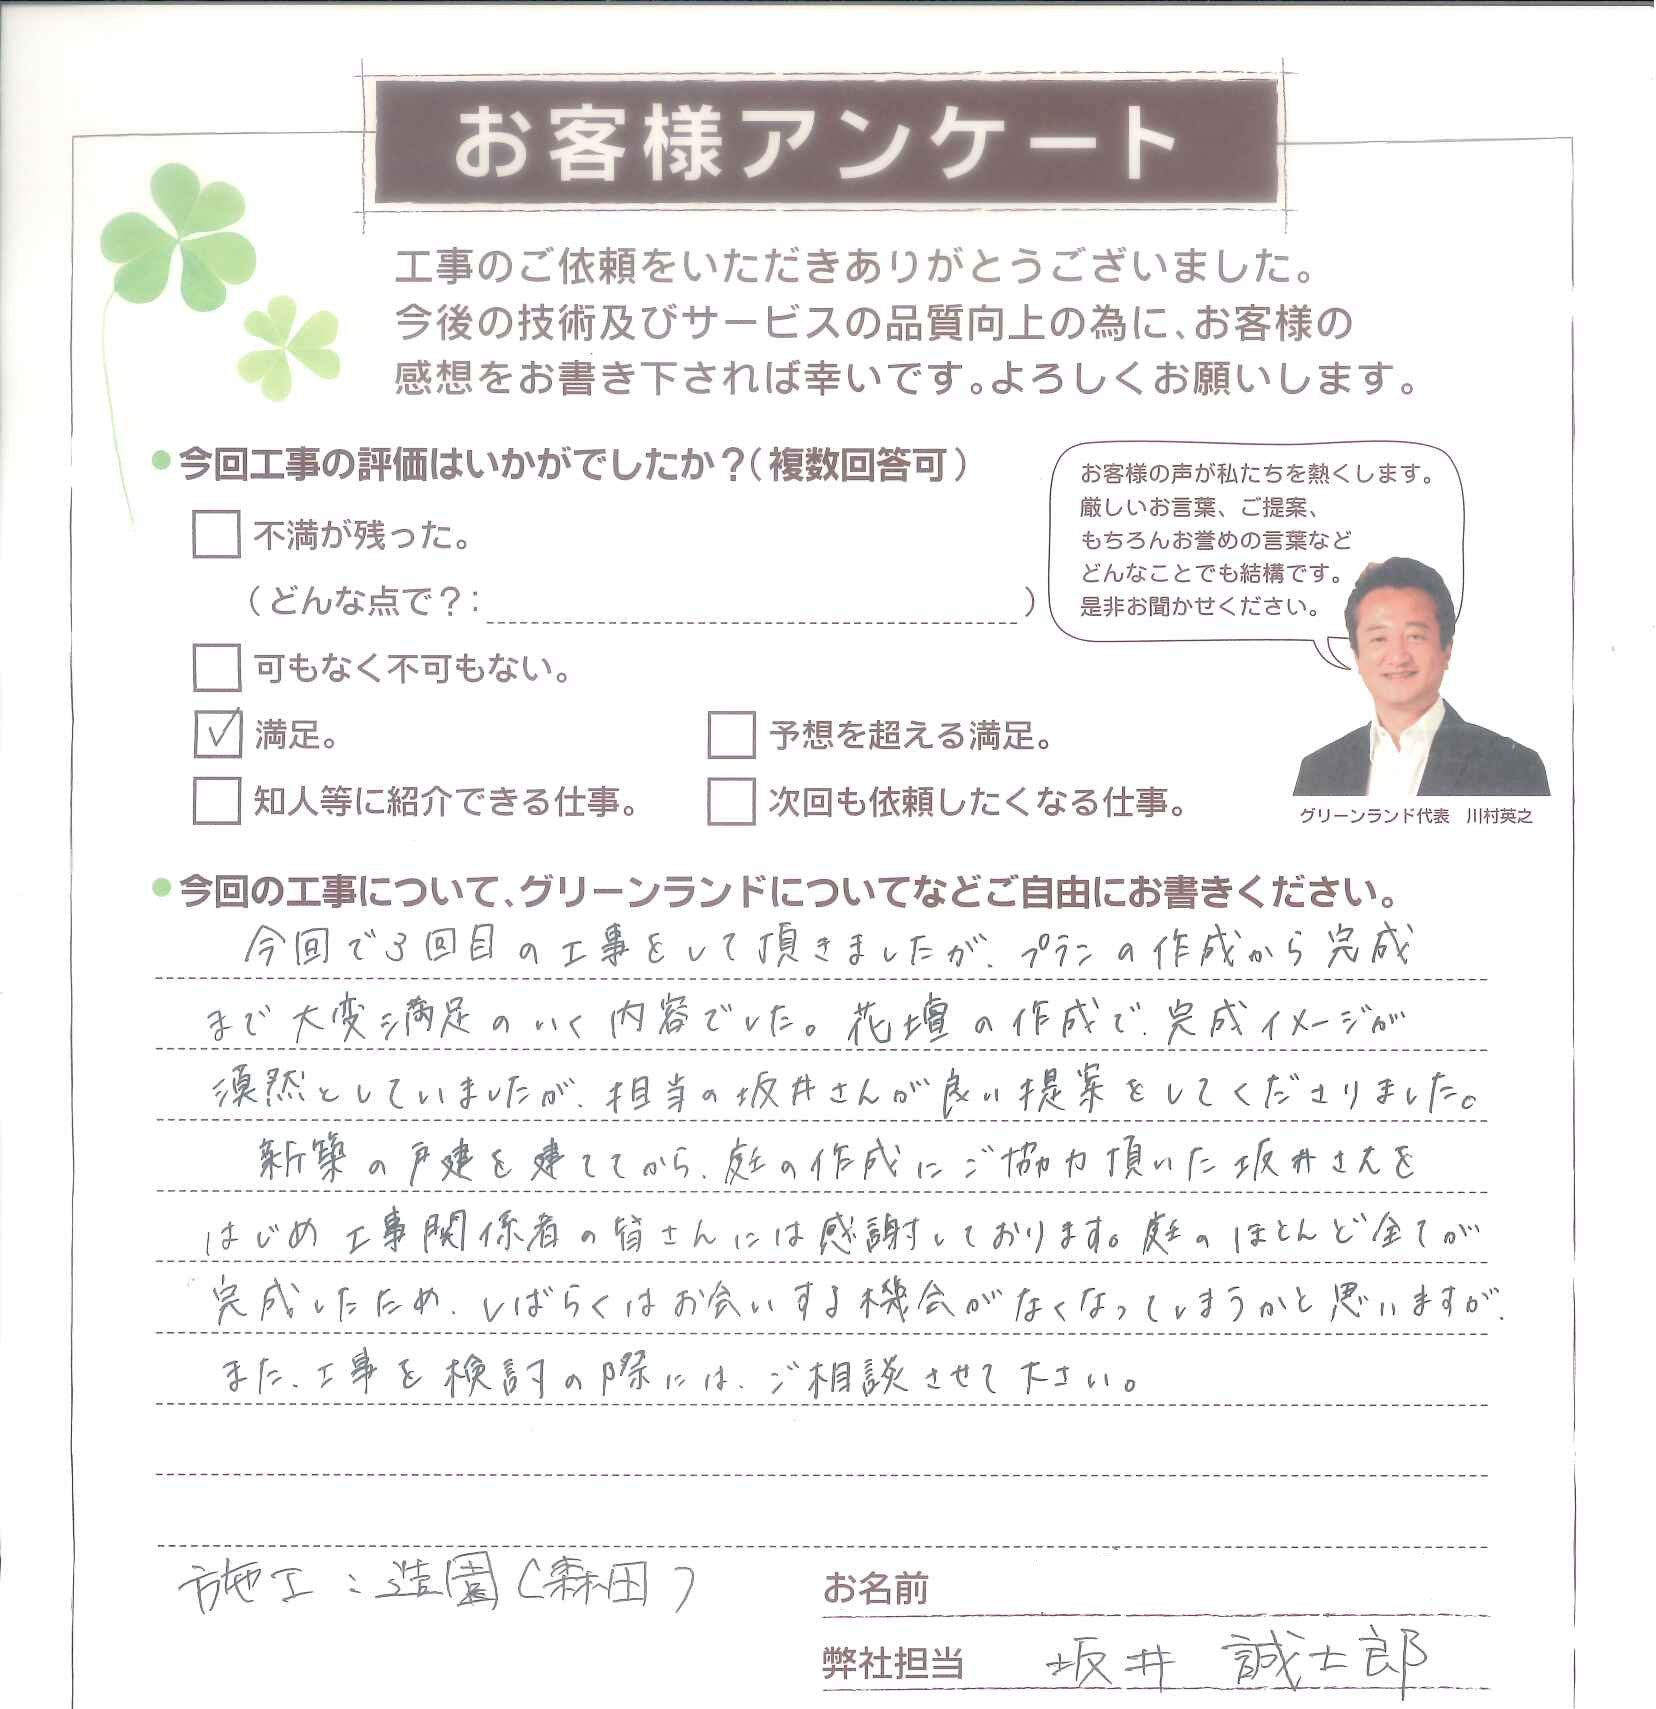 お客様アンケート
工事のご依頼をいただきありがとうございました。
今後の技術及びサービスの品質向上の為に、お客様の
感想をお書き下されば幸いです。よろしくお願いします。
●今回工事の評価はいかがでしたか？(複数回答可)
不満が残った。
(どんな点で？: )
可もなく不可もない。
✓ 満足。
予想を超える満足。
知人等に紹介できる仕事。
次回も依頼したくなる仕事。
お客様の声が私たちを熱くします。
厳しいお言葉、ご提案、
もちろんお誉めの言葉など
どんなことでも結構です。
是非お聞かせください。
グリーンランド代表 川村英之
●今回の工事について、グリーンランドについてなどご自由にお書きください。
今回で3回目の工事をして頂きましたが、プランの作成から完成
まで大変満足のいく内容でした。花壇の作成で、完成イメージが
漠然としていましたが、担当の坂井さんが良い提案をしてくださりました。
新築の戸建を建ててから、庭の作成にご協力頂いた坂井さんを
はじめ工事関係者の皆さんには感謝しております。庭のほとんど全てが
完成したため、しばらくはお会いする機会がなくなってしまうかと思いますが、
また、工事を検討の際には、ご相談させて下さい。
施工：造園(森田)
お名前
弊社担当 坂井 誠士郎